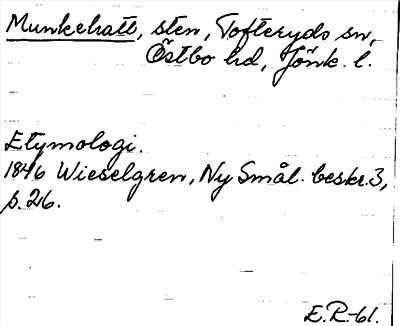 Munkehatt, sten, Tofteryds sn,
Östbo hd, Jönk. l.
Etymologi.
1846 Wieselgren, Ny Smål. beskr. 3,
p. 26.
E.R-61.